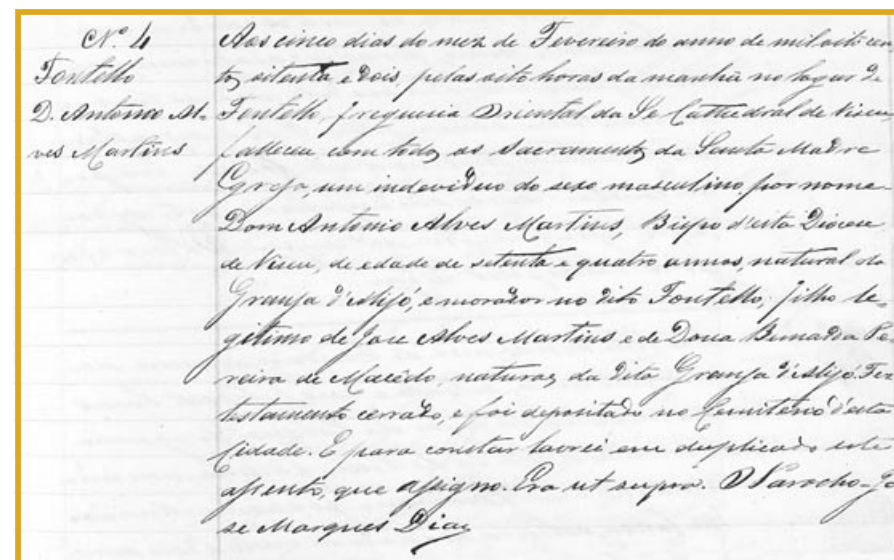 Nº 4
Fontello
D. Antonio Al-
ves Martins
Aos cinco dias do mez de Fevereiro do anno de mil oito cen
tos, setenta, e dois, pelas oito horas da manhã no logar de
Fontello, freguezia Oriental da Se Cathedral de Viseu,
falleceu com todos os Sacramentos da Santa Madre
Egreja, um individuo do sexo masculino, por nome
Dom Antonio Alves Martins, Bispo d'esta Diocese
de Viseu, de edade de setenta e quatro annos, natural da
Granja d'Alijó, e morador no dito Fontello; filho le-
gitimo de Jose Alves Martins e de Dona
reira de Macêdo, naturaes da dita Granja d'Alijó. Fez
testamento cerrado, e foi depositado no Cemiterio d'esta
Cidade. E para constar lavrei em duplicado este
assento, que assigno. Era ut supra. O Parocho - Jo
se Marques Dias